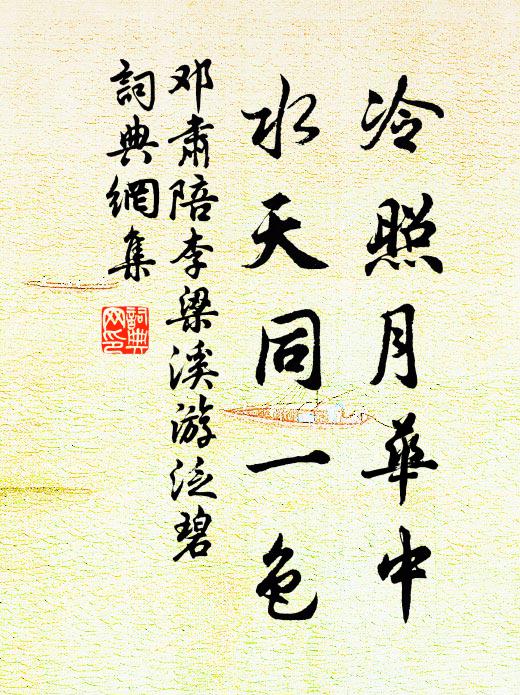 冷照月華中
水天同一色
邓肅陪李梁溪游泛碧
詞典網集
詞典
网印